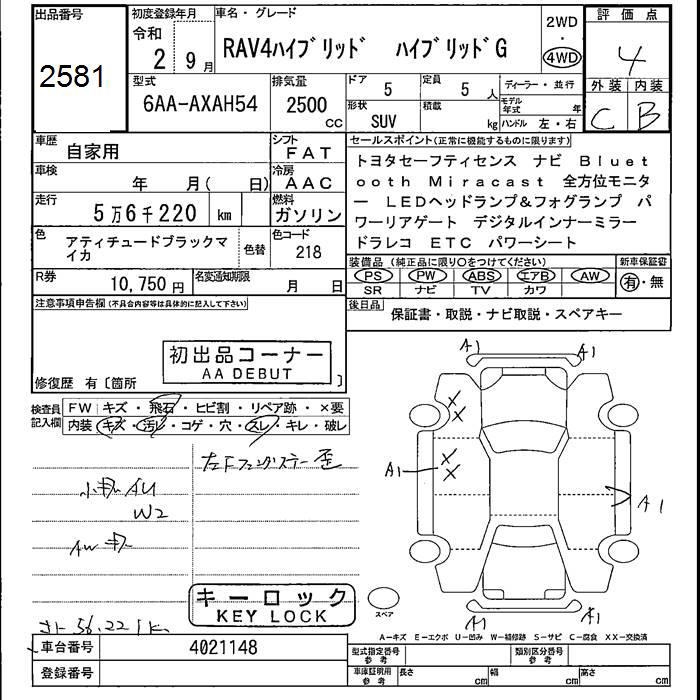 出品番号
2581
初度登録年月
令和
2 9月
車名・グレード
RAV4ハイブリッド ハイブリッドG
2WD
・
4WD
評価点
4
外装 内装
C B
型式
6AA-AXAH54
排気量
2500
cc
ドア
5
定員
5 人
形状
SUV
積載
kg
ディーラー・並行
モデル年式 年
ハンドル 左・右
車歴
自家用
シフト
FAT
車検
年 月( 日)
冷房
AAC
走行
5万6千220 km
燃料
ガソリン
色
アティチュードブラックマイカ
色替
色コード
218
R券
10,750円
名変通知期限
月 日
セールスポイント(正常に機能するものに限ります)
トヨタセーフティセンス ナビ Bluet
ooth Miracast 全方位モニタ
ー LEDヘッドランプ&フォグランプ パ
ワーリアゲート デジタルインナーミラー
ドラレコ ETC パワーシート
装備品(純正品に限り○をつけてください)
PS PW ABS エアB AW
SR ナビ TV カワ
新車保証書
有・無
後日品
保証書・取説・ナビ取説・スペアキー
注意事項申告欄(不具合内容等は具体的に記入して下さい)
初出品コーナー
AA DEBUT
修復歴 有〔箇所 〕
検査員
記入欄
FW キズ・飛石・ヒビ割・リペア跡・×要
内装 キズ・汚レ・コゲ・穴・スレ・キレ・破レ
左Fフェンダステー歪
小キズAU
W2
AWキズ
キーロック
KEY LOCK
56,221k
A1 A1
A1
A1
A1 A1
スペア
A-キズ E-エクボ U-凹み W-補修跡 S-サビ C-腐食 XX-交換済
車台番号
4021148
登録番号
型式指定番号
参考
類別区分番号
参考
車庫証明用
参考
長さ cm
幅 cm
高さ cm